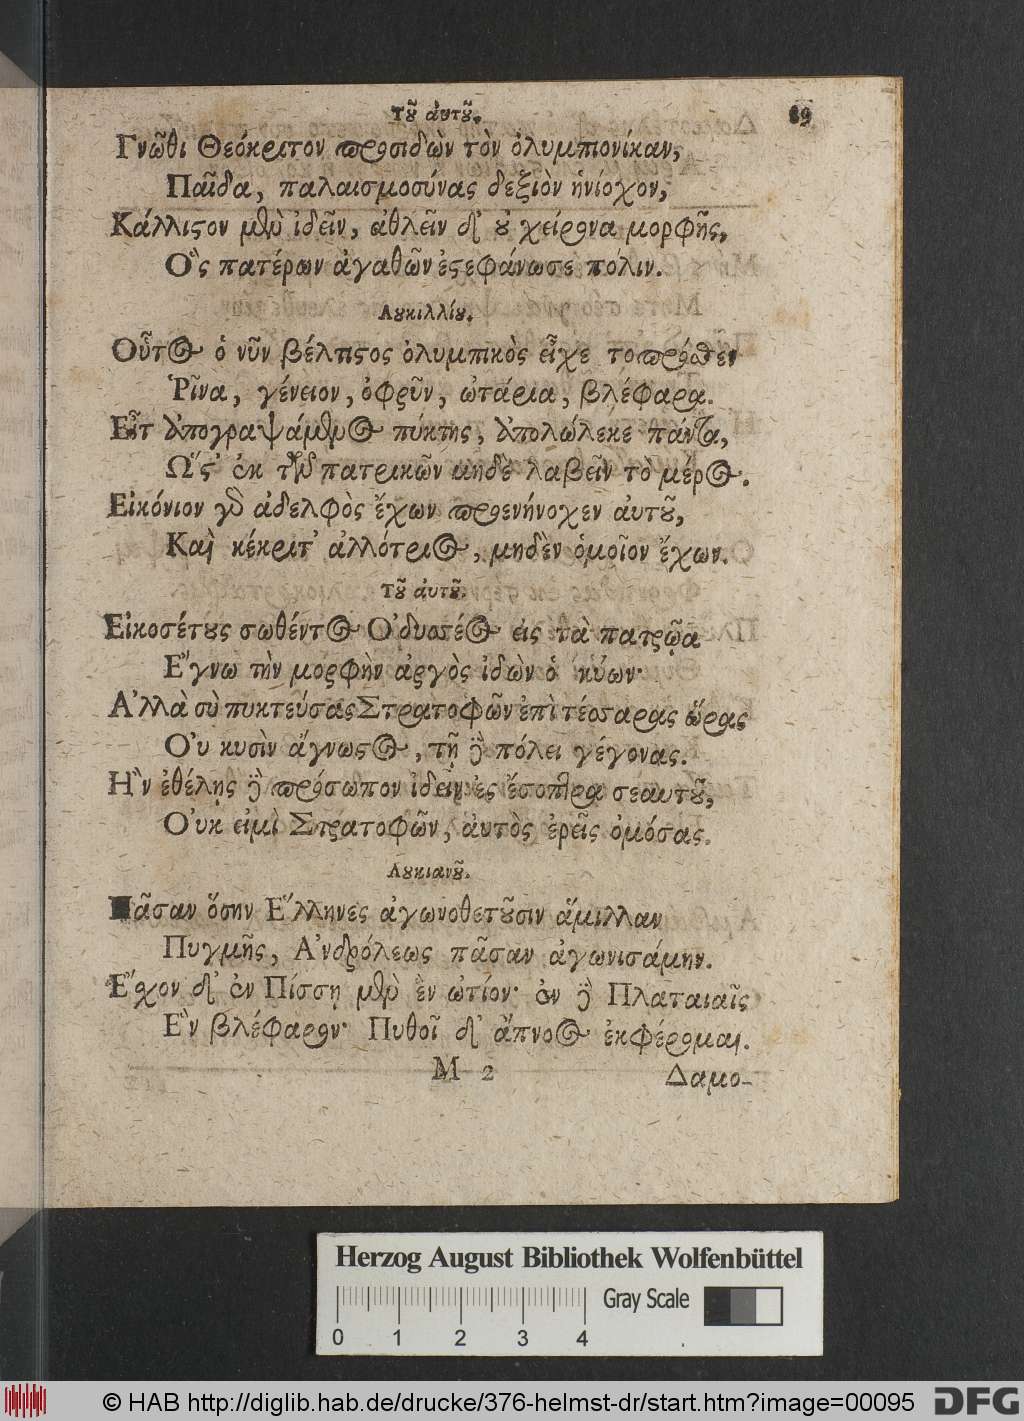 Τοῦ αὐτοῦ. 89
Γνῶθι Θεόκριτον προσιδὼν τὸν ὀλυμπιονίκαν,
Παῖδα, παλαισμοσύνας δεξιὸν ἡνίοχον,
Κάλλιστον μὲν ἰδεῖν, ἀθλεῖν δ' οὐ χείρονα μορφῆς,
Ὃς πατέρων ἀγαθῶν ἐστεφάνωσε πολιν.
Λουκιλλίου.
Οὗτος ὁ νῦν βέλτιστος ὀλυμπικὸς εἶχε τοπρόσθεν
Ῥῖνα, γένειον, ὀφρῦν, ὠτάρια, βλέφαρα.
Εἶτ ἀπογραψάμενος πύκτης, ἀπολώλεκε πάντα,
Ὥστ' ἐκ τῶν πατρικῶν μηδὲ λαβεῖν τὸ μέρος.
Εἰκόνιον γὰρ ἀδελφὸς ἔχων προενήνοχεν ἀυτοῦ,
Καὶ κέκριτ' ἀλλότριος, μηδὲν ὁμοῖον ἔχων.
Τοῦ ἀυτοῦ.
Εἰκοσέτους σωθέντος Ὀδυσσέος εἰς τὰ πατρῷα
Ἔγνω τὴν μορφὴν ἀργὸς ἰδὼν ὁ κύων·
Ἀλλὰ σὺ πυκτεύσας Στρατοφῶν ἐπὶ τέσσαρας ὥρας
Ὀυ κυσὶν ἄγνωστος, τῇ δὲ πόλει γέγονας.
Ἢν ἐθέλῃς δὲ πρόσωπον ἰδεῖν ἐς ἔσοπτρα σεαυτοῦ,
Ὀυκ εἰμὶ Στρατοφῶν, ἀυτὸς ἐρεῖς ὀμόσας.
Λουκιανοῦ.
Πᾶσαν ὅσην Ἕλληνες ἀγωνοθετοῦσιν ἅμιλλαν
Πυγμῆς, Ἀνδρόλεως πᾶσαν ἀγωνισάμην.
Ἔσχον δ' ἐν Πίσσῃ μὲν ἓν ὠτίον· ἐν δὲ Πλαταιαῖς
Ἓν βλέφαρον· Πυθοῖ δ' ἄπνοος ἐκφέρομαι.
M 2 Δαμο-
Herzog August Bibliothek Wolfenbüttel
Gray Scale
0 1 2 3 4
© HAB http://diglib.hab.de/drucke/376-helmst-dr/start.htm?image=00095 DFG